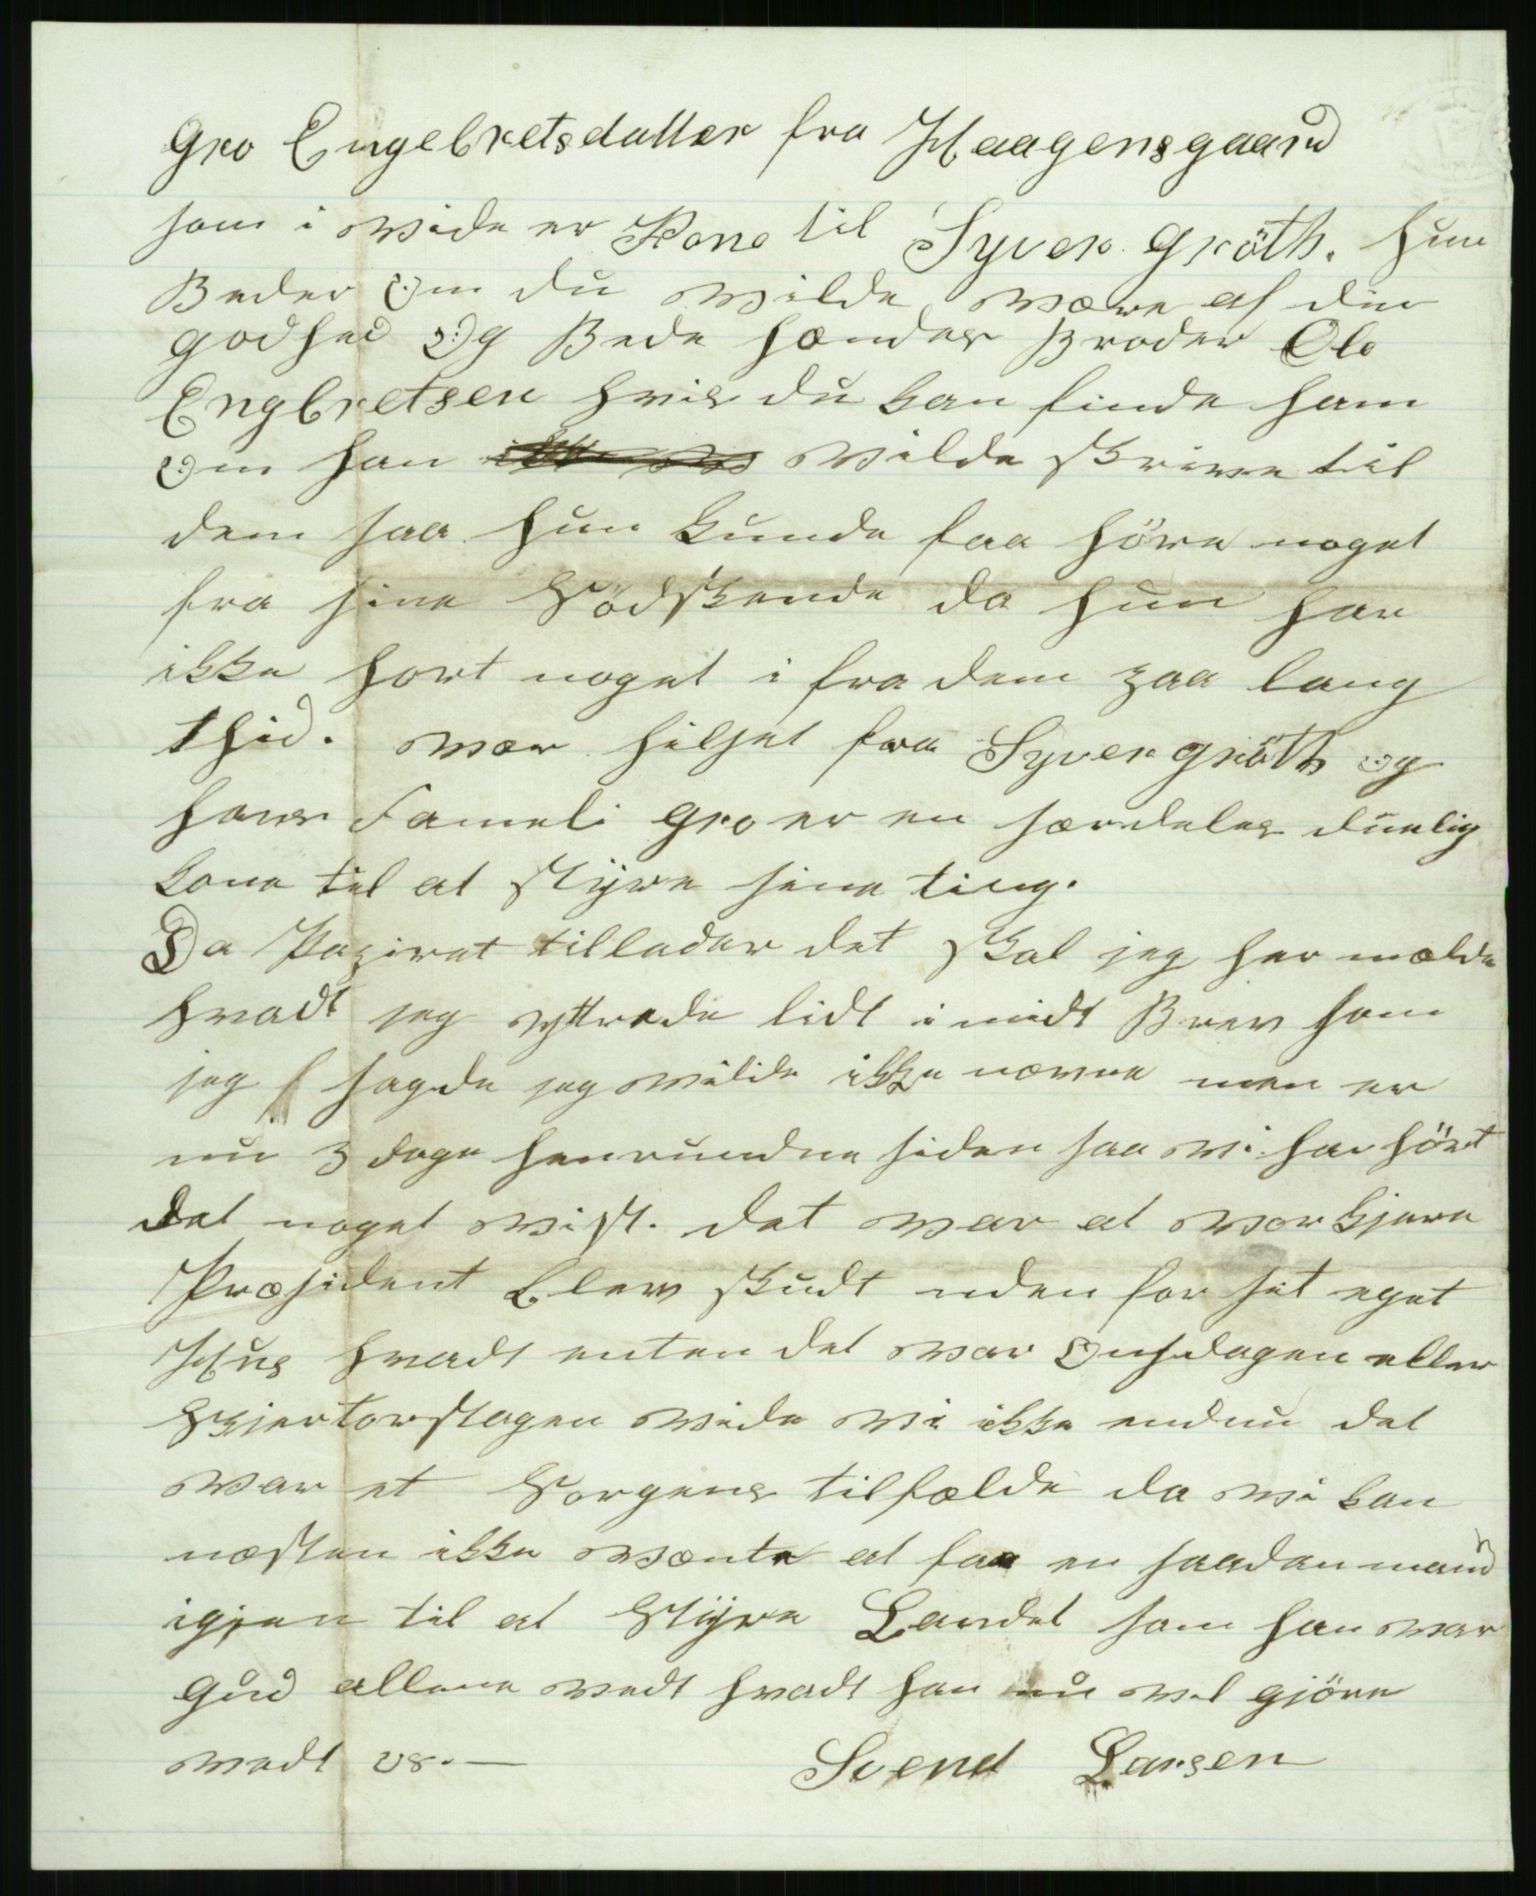 Gro Engebretsdatter fra Haagensgaard
som i vide er Kone til Syver Gröth. hun
Beder Om du vilde være af din
godhed Og Bede hendes Broder Ole
Engbretsen hvis du kan finde ham
Om han vilde skrive til
dem saa hun kunde faa höre noget
fra sine Södskende da hun har
ikke hort noget i fra dem zaa lang
thid. vær hilset fra Syver gröth og
hans Fameli Gro er en særdeles duelig
kone til at styre sine ting.
Da Papiret tillader det skal jeg her mælde
hvadt jeg yttrede lidt i midt Brev som
jeg sagde jeg vilde ikke nævne men er
nu 3 dage henrundne siden saa vi har hört
det noget vist. det var at vor kjere
Præsident blev skudt uden for sit eget
Hus hvadt enten det var Onsdagen eller
Skjertorstagen vide vi ikke endnu det
var et Sorgens tilfælde da vi kan
næsten ikke vænte at faa en saadan mand
igjen til at Styre Landet som han var
Gud allene vedt hvadt han nu vil gjöre
vedt os.— Svend Larsen